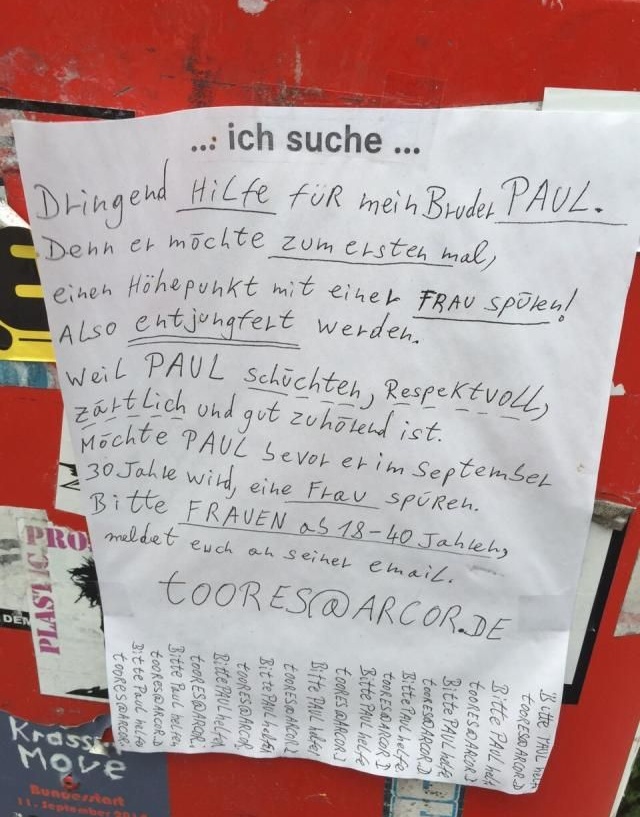 ... ich suche ...
Dringend Hilfe für mein Bruder PAUL.
Denn er möchte zum ersten mal,
einen Höhepunkt mit einer FRAU spüren!
Also entjungfert werden.
Weil PAUL schüchten, Respektvoll,
zärtlich und gut zuhörend ist.
Möchte PAUL bevor er im September
30 Jahre wird, eine Frau spüren.
Bitte FRAUEN ab 18-40 Jahren,
meldet euch an seiner email.
tOORES@ARCOR.DE
Bitte Paul helfe
toores@ARCOR
Bitte Paul helfen
toores@ARCOR.D
Bitte PAUL helfen
toores@ARCOR.
Bitte PAUL helfen
toores@ARCOR.
Bitte PAUL helfen
toores@ARCOR.
Bitte PAUL helfe
toores@ARCOR.
Bitte PAUL helfe
toores@ARCOR.D
Bitte PAUL helfe
toores@ARCOR.D
Bitte PAUL helf
toores@ARCOR.D
Bitte PAUL helfe
toores@ARCOR.D
PRO
PLASTIC
DEM
Krasser
Move
Bundesstart
11. September